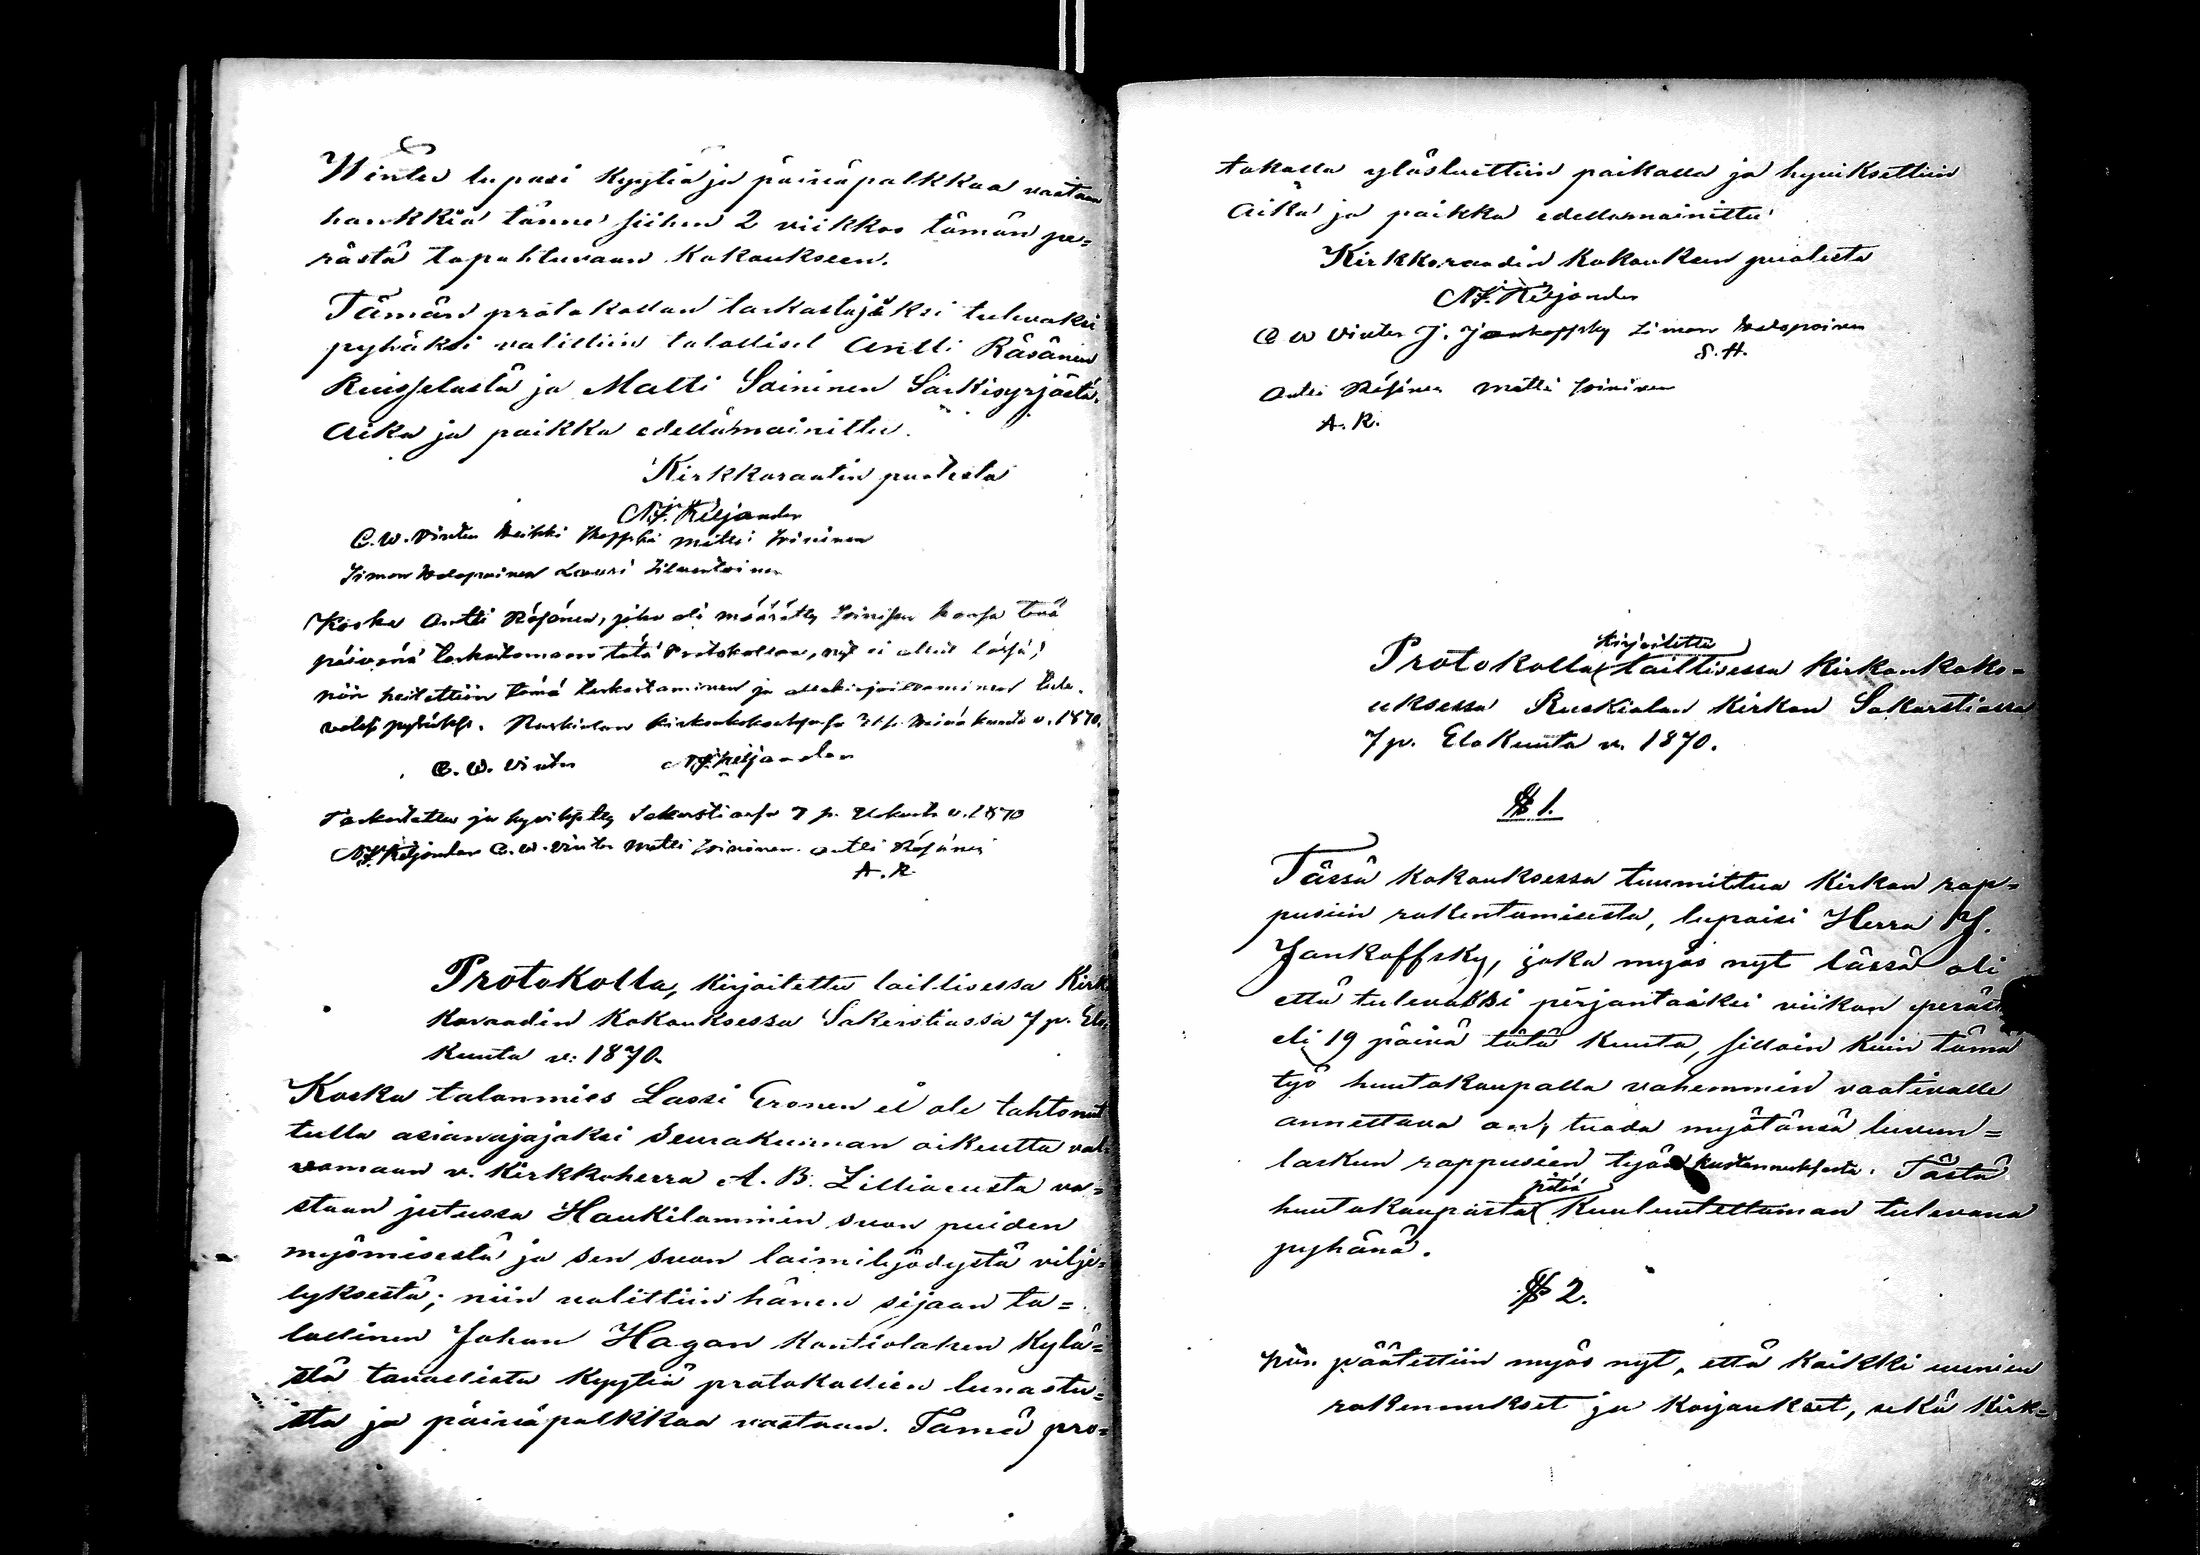 Winter lupasi kyytiä ja päiväpalkkaa vastaan
hankkia tänne siihen 2 viikkoo tämän pe=
rästä tapahtuvaan kokoukseen.
Tämän protokollan tarkastajaksi tulevaksi
pyhäksi valittiin talolliset Antti Räsänen
Ruisselasta ja Matti Soininen Särkisyrjästä.
Aika ja paikka edellämainittu.
Kirkkoraatin puolesta
N.J. Keljander
C. W. Vinter Heikki Matti Soininen
Simon Lauri
Koska Antti Räsänen, joka oli määrätty Soinisen kanssa tänä
päivänä tarkastamaan tätä Protokollaa, nyt ei ollut läsnä;
niin heitettiin tämä tarkastaminen ja allekirjoittaminen tule-
vaksi pyhäksi. Ruskialan kirkonkokouksessa 31 p. Heinäkuuta v. 1870.
C. W. Vinter N.J. Keljander
Tarkastettu ja hyväksytty Sakastiassa 7 p. Elokuuta v. 1870
N.J. Keljander C. W. Vinter Matti Soininen. Antti Räsänen
A. R.
Protokolla, kirjoitettu laillisessa Kirk
koraadin kokouksessa Sakerstiassa 7 p. Elo
kuuta v: 1870.
Koska talonmies Lassi Eronen ei ole tahtonut
tulla asianajajaksi Seurakunnan oikeutta val
vomaan v. Kirkkoherra A. B. Lilliacusta va=
staan jutussa Haukilammin suon puiden
myömisestä ja sen suon laimilyödystä vilje=
lyksestä; niin valittiin hänen sijaan ta=
lollinen Johan Hagan Kontiolahen kylä=
stä tavallista kyytiä protokollien lunastu=
sta ja päiväpalkkaa vastaan. Tämä pro=
tokolla ylösluettiin paikalla ja hyviksettiin
Aika ja paikka edellämainittu
Kirkkoraadin kokouksen puolesta
N.J. Keljander
C W Vinter J. Jankoffsky Simon
S. H.
Antti Räsänen Matti Soininen
A. R.
kirjoitettu
Protokolla laillisessa Kirkonkoko-
uksessa Ruskialan kirkon Sakarstiassa
7 p. Elokuuta v. 1870.
§ 1.
Tässä kokouksessa tuumittua kirkon rap=
pusiin rakentamisesta, lupaisi Herra J.
Jankoffsky, joka myös nyt tässä oli
että tulevaksi perjantaiksi viikon peräst
eli 19 päivä tätä kuuta, silloin kuin tämä
työ huutokaupalla vahemmin vaativalle
annettava on, tuoda myötänsä luvun=
laskun rappusien työn kustannuksesta. Tästä
pitää
huutokaupasta kuulutettaman tulevana
pyhänä.
§ 2.
Niin päätettiin myös nyt, että kaikki uunien
rakennukset ja korjaukset, sekä kirk=